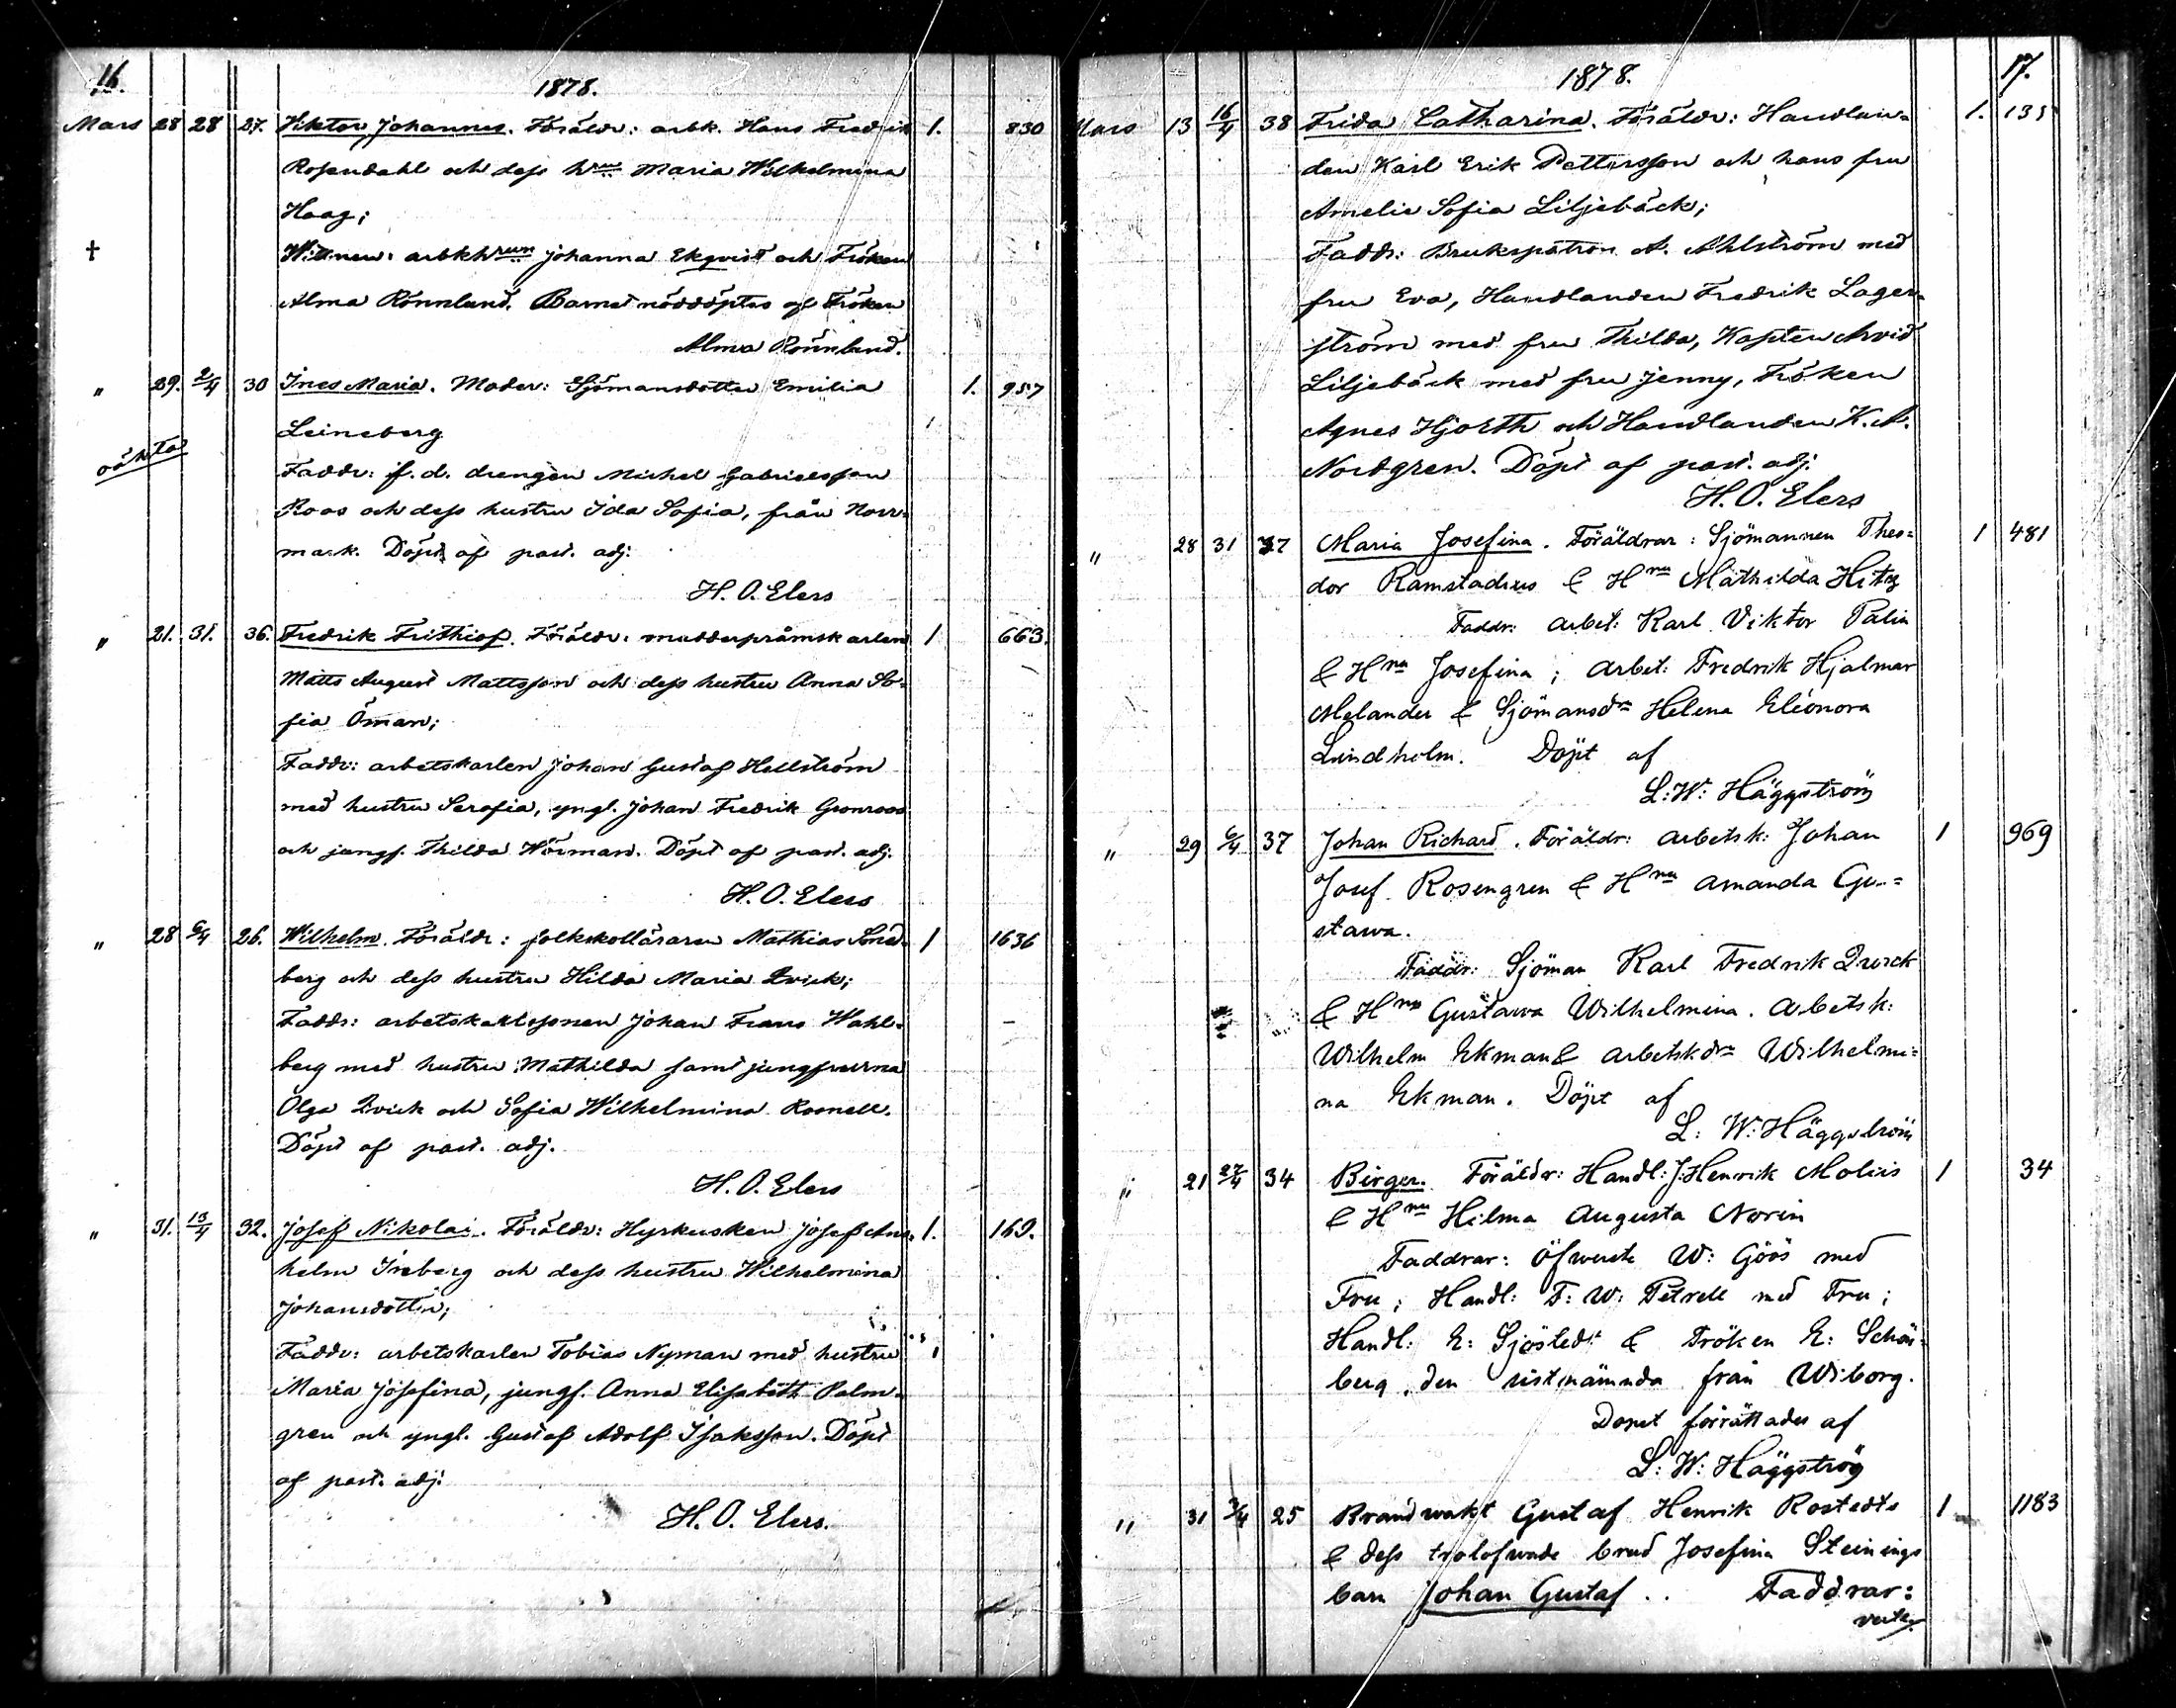 16.
1878.
Mars 28 28 27. Viktor Johannes. Föräldr: arbk. Hans Fredrik 1. 830
Rosendahl och dess hru Maria Wilhelmina
Haag;
† Wittnen: arbkhrun Johanna Ekqvist och Fröken
Alma Rönnlund. Barnet nöddöptes af Fröken
Alma Rönnlund.
" 29. 2/4 30 Ines Maria. Moder: Sjömansdotter Emilia 1. 957
Leineberg
oäkta
Faddr: f. d. drengen Mickel Gabrielsson
Roos och dess hustru Ida Sofia, från Norr-
mark. Döpt af past. adj:
H. O. Elers
" 21. 31. 36. Fredrik Frithiof. Föräldr: mudderpråmskarlen 1 663.
Matts August Mattsson och dess hustru Anna So-
fia Öman;
Faddr: arbetskarlen Johan Gustaf Hellström
med hustru Serafia, yngl. Johan Fredrik Grönroos
och jungf. Thilda Hörman. Döpt af past. adj.
H. O. Elers
" 28 6/4 26. Wilhelm. Föräldr: folkskolläraren Mathias
berg och dess hustru Hilda Maria Qvick; 1 1636
Faddr: arbetskarlssonen Johan Frans Wahl-
berg med hustru Mathilda samt jungfrurna
Olga Qvick och Sofia Wilhelmina Rosnell.
Döpt af past. adj.
H. O. Elers
" 31. 13/4 32. Josef Nikolai. Föräldr: Hyrkusken Josef An- 1. 160.
helm Ineberg och dess hustru Wilhelmina
Johansdotter;
Faddr: arbetskarlen Tobias Nyman med hustru
Maria Josefina, jungf. Anna Elisabeth Palm-
gren och yngl. Gustaf Adolf Isaksson. Döpt
af past. adj:
H. O. Elers.
17.
1878.
Mars 13 16/4 38 Frida Catharina. Föräldr: Handlan- 1. 135
den Karl Erik Pettersson och hans fru
Amelie Sofia Liljebäck;
Faddr: Brukspatron A. Ahlström med
fru Eva, Handlanden Fredrik Lager-
ström med fru Thilda, Kapten Arvid
Liljebäck med fru Jenny, Fröken
Agnes Hjorth och Handlanden K. A.
Nordgren. Döpt af past. adj.
H. O. Elers
" 28 31 37 Maria Josefina. Föräldrar: Sjömannen Theo= 1 481
dor Ramstadius & Hru Mathilda
Faddr: arbet: Karl Viktor Palin
& Hru Josefina; arbet: Fredrik Hjalmar
Melander & Sjömansdr Helena Eleonora
Lindholm. Döpt af
L: W: Häggström
" 29 6/4 37 Johan Richard. Föräldr: arbetsk: Johan 1 969
Josef Rosengren & Hru Amanda Gu=
stava.
Faddr: Sjöman Karl Fredrik Qvick
& Hru Gustava Wilhelmina. arbetsk:
Wilhelm Ekman & arbetskdr Wilhelmi=
na Ekman. Döpt af
L: W: Häggström
" 21 27/4 34 Birger. Föräldr: Handl: J: Henrik Moliis 1 34
& Hru Hilma Augusta Norin
Faddrar: öfverste W: Göös med
Fru; Handl: F: W: Petrell med Fru;
Handl: E: Sjöstedt & Fröken E: Schön-
berg, den sistnämnda från Wiborg.
Dopet förrättades af
L: W: Häggström
" 31 3/4 25 Brandvakt Gustaf Henrik Rostedts 1 1183
& dess trolofvade brud Josefina Steinings
barn Johan Gustaf.. Faddrar:
verte